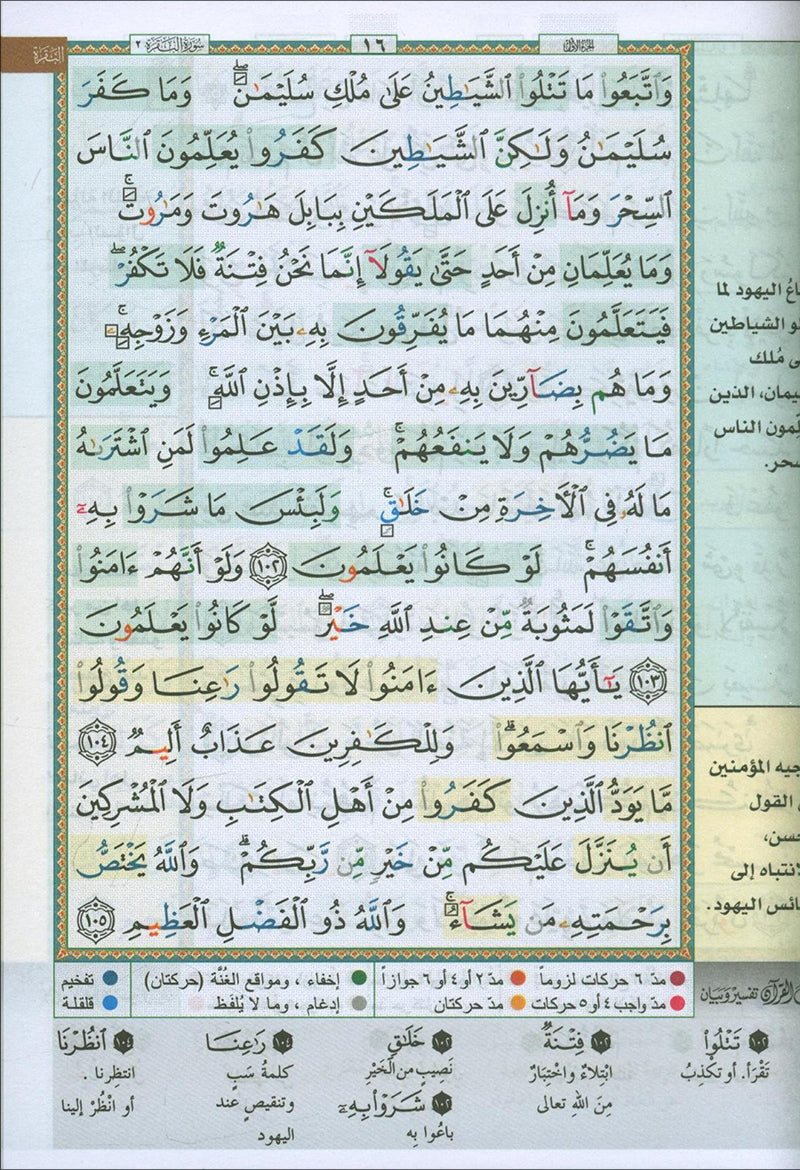 الجزء الأول
١٦
سورة البقرة ٢
البقرة
وَاتَّبَعُوا۟ مَا تَتْلُوا۟ الشَّيَـٰطِينُ عَلَىٰ مُلْكِ سُلَيْمَـٰنَ ۖ وَمَا كَفَرَ
سُلَيْمَـٰنُ وَلَـٰكِنَّ الشَّيَـٰطِينَ كَفَرُوا۟ يُعَلِّمُونَ النَّاسَ
السِّحْرَ وَمَآ أُنزِلَ عَلَى الْمَلَكَيْنِ بِبَابِلَ هَـٰرُوتَ وَمَـٰرُوتَ ۚ
وَمَا يُعَلِّمَانِ مِنْ أَحَدٍ حَتَّىٰ يَقُولَآ إِنَّمَا نَحْنُ فِتْنَةٌ فَلَا تَكْفُرْ ۖ
فَيَتَعَلَّمُونَ مِنْهُمَا مَا يُفَرِّقُونَ بِهِۦ بَيْنَ الْمَرْءِ وَزَوْجِهِۦ ۚ
وَمَا هُم بِضَآرِّينَ بِهِۦ مِنْ أَحَدٍ إِلَّا بِإِذْنِ اللَّهِ ۚ وَيَتَعَلَّمُونَ
مَا يَضُرُّهُمْ وَلَا يَنفَعُهُمْ ۚ وَلَقَدْ عَلِمُوا۟ لَمَنِ اشْتَرَىٰهُ
مَا لَهُۥ فِى الْـَٔاخِرَةِ مِنْ خَلَـٰقٍ ۚ وَلَبِئْسَ مَا شَرَوْا۟ بِهِۦٓ
أَنفُسَهُمْ ۚ لَوْ كَانُوا۟ يَعْلَمُونَ ١٠٢ وَلَوْ أَنَّهُمْ ءَامَنُوا۟
وَاتَّقَوْا۟ لَمَثُوبَةٌ مِّنْ عِندِ اللَّهِ خَيْرٌ ۖ لَّوْ كَانُوا۟ يَعْلَمُونَ
١٠٣ يَـٰٓأَيُّهَا الَّذِينَ ءَامَنُوا۟ لَا تَقُولُوا۟ رَٰعِنَا وَقُولُوا۟
انظُرْنَا وَاسْمَعُوا۟ ۗ وَلِلْكَـٰفِرِينَ عَذَابٌ أَلِيمٌ ١٠٤
مَّا يَوَدُّ الَّذِينَ كَفَرُوا۟ مِنْ أَهْلِ الْكِتَـٰبِ وَلَا الْمُشْرِكِينَ
أَن يُنَزَّلَ عَلَيْكُم مِّنْ خَيْرٍ مِّن رَّبِّكُمْ ۗ وَاللَّهُ يَخْتَصُّ
بِرَحْمَتِهِۦ مَن يَشَآءُ ۚ وَاللَّهُ ذُو الْفَضْلِ الْعَظِيمِ ١٠٥
اليهود لما
الشياطين
مُلك
الذين
الناس
المؤمنين
القول
إلى
اليهود.
مدّ ٦ حركات لزوماً مدّ ٢ أو ٤ أو ٦ جوازاً إخفاء، ومواقع الغُنَّة (حركتان) تفخيم
مدّ واجب ٤ أو ٥ حركات مدّ حركتان إدغام، وما لا يُلفَظ قلقلة
القرآن تفسير وبيان
١٠٢ تَتْلُوا۟
تَقْرَأ. أو تكْذِبُ
١٠٢ فِتْنَةٌ
ابتِلاءٌ واخْتِبَارٌ
مِنَ اللهِ تعالى
١٠٢ خَلَـٰقٍ
نَصِيبٍ من الخَيْرِ
١٠٢ شَرَوْا۟ بِهِۦٓ
باعُوا بِه
١٠٤ رَٰعِنَا
كلمةُ سَبٍ
وتنقيصٍ عند
اليهود
١٠٤ انظُرْنَا
انتظِرنا.
أو انْظُرْ إلينا